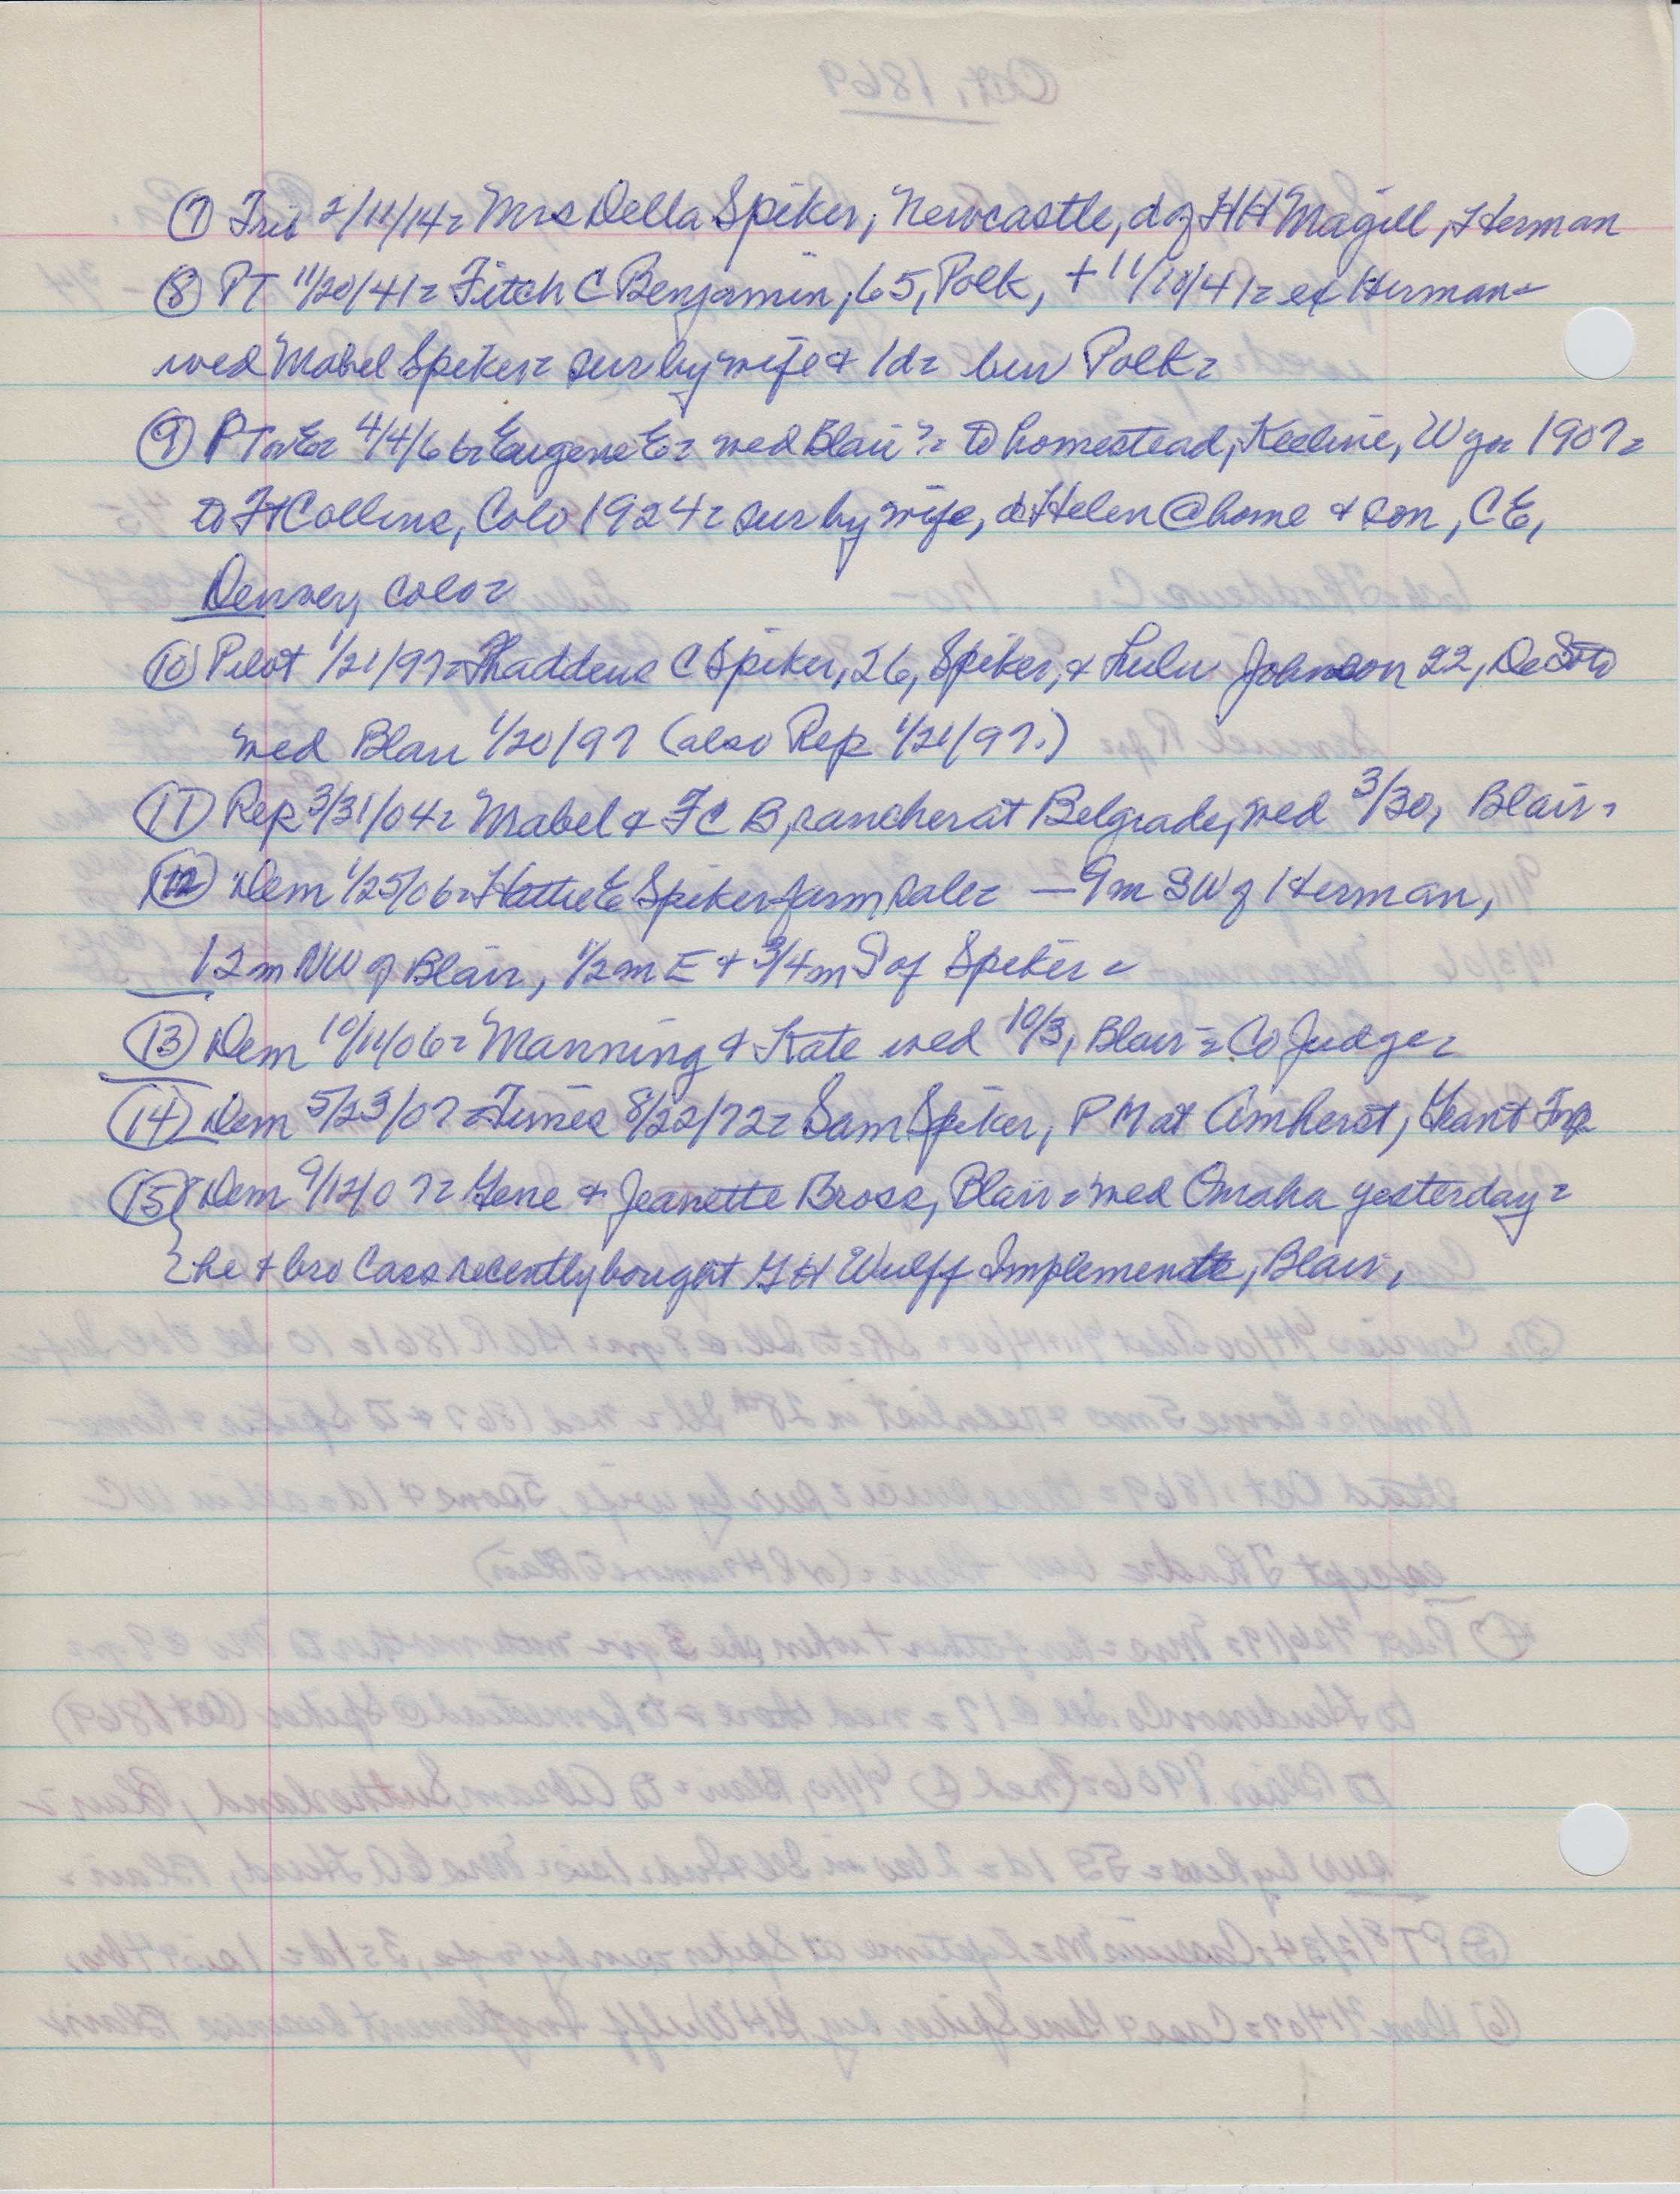 ⑦ Trib 2/11/14 = Mrs Della Spiker, Newcastle, d of HH Magill, Herman
⑧ PT 11/20/41 = Fitch C Benjamin, 65, Polk, + 11/10/41 = ex Herman =
wed Mabel Spiker = sur by wife & 1d = bur Polk =
⑨ PT 4/4/66 = Eugene E = wed Blair ? = to homestead, Keeline, Wyo = 1907 =
to Ft Collins, Colo 1924 = sur by wife, d Helen @ home & son, CE,
Denver, Colo =
⑩ Pilot 1/21/97 = Thaddeus C Spiker, 26, Spiker, & Lulu Johnson 22, DeSoto
wed Blair 1/20/97 (also Rep 1/21/97.)
⑪ Rep 3/31/04 = Mabel & FC B, rancher at Belgrade, wed 3/30, Blair =
⑫ Dem 1/25/06 = Hattie E Spiker farm sale = — 9m SW of Herman,
12m NW of Blair, 1/2m E & 3/4m S of Spiker =
⑬ Dem 10/11/06 = Manning & Kate wed 10/3, Blair = Co Judge =
⑭ Dem 5/23/07 = Times 8/22/72 = Sam Spiker, PM at Amherst, Grant Twp
⑮ Dem 9/12/07 = Gene & Jeanette Bross, Blair = wed Omaha yesterday =
he & bro Cass recently bought GH Wulff Implements, Blair,